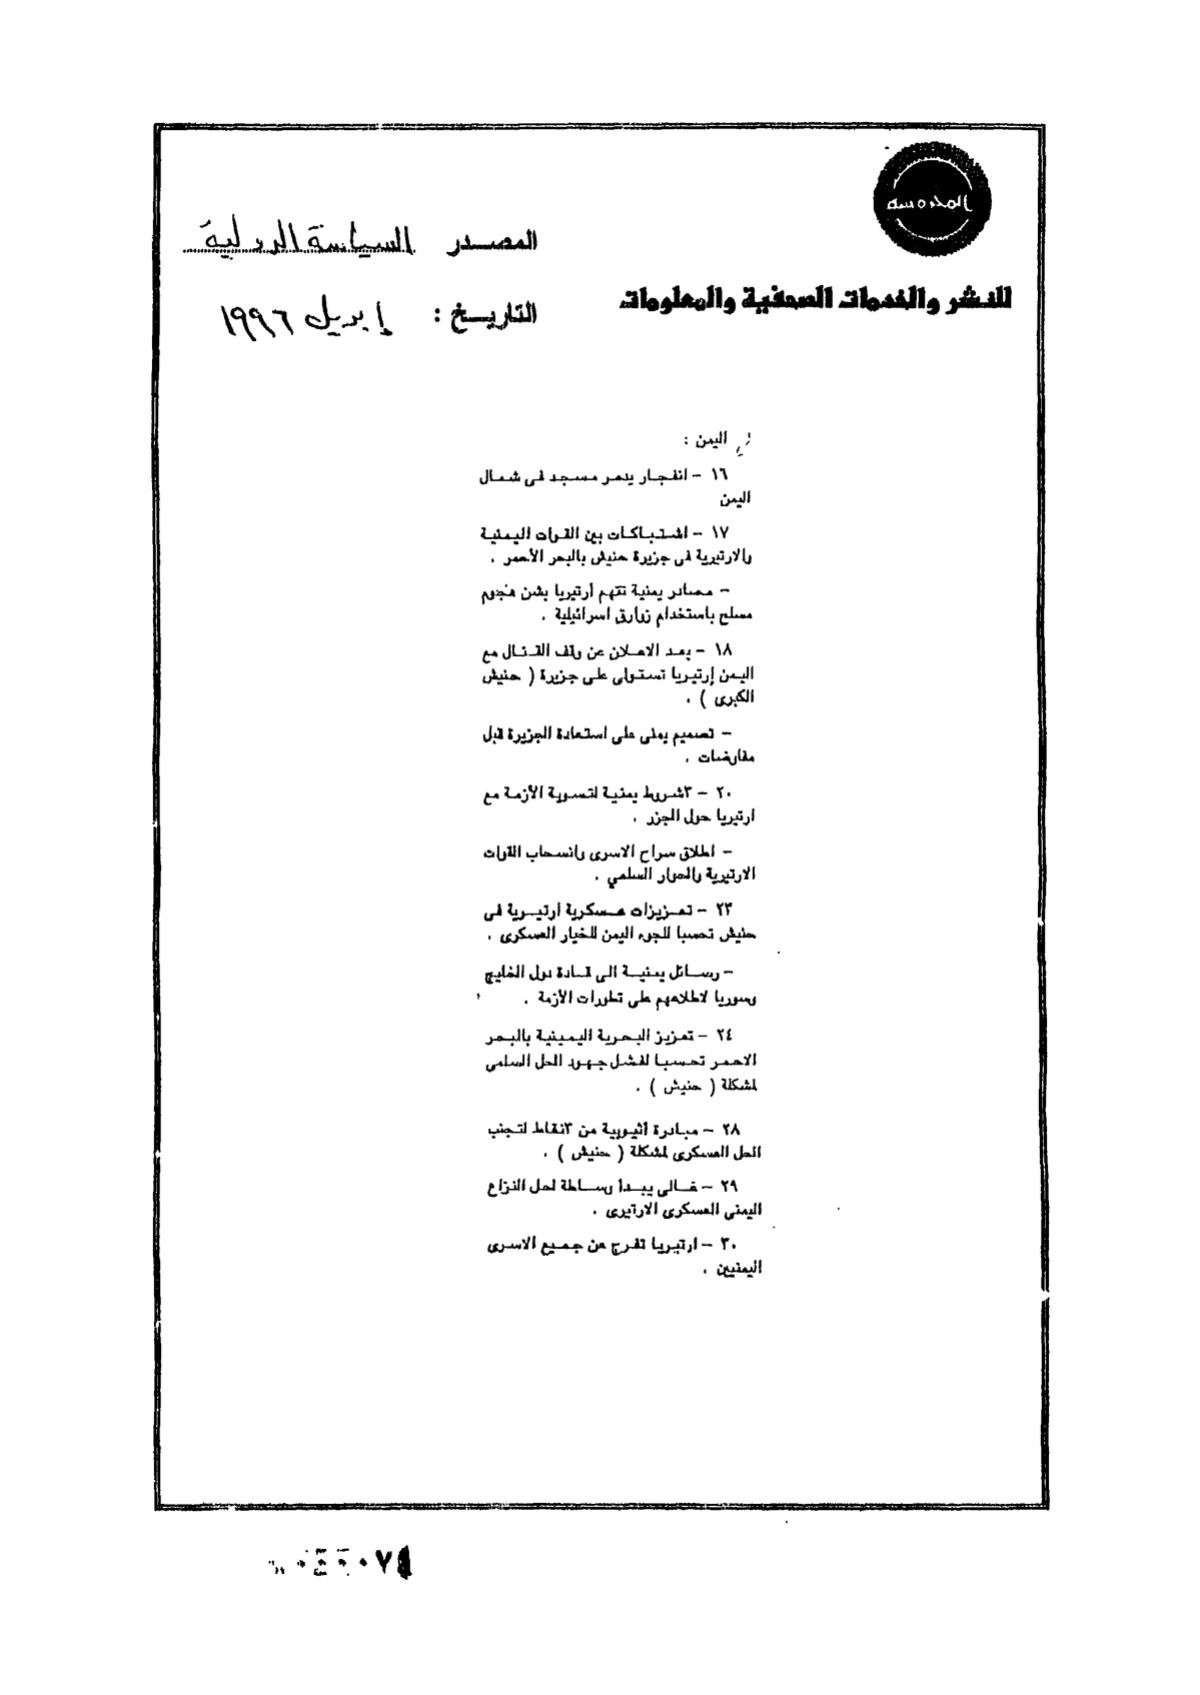 المحروسة
للنشر والخدمات الصحفية والمعلومات
المصدر السياسة الدولية
التاريخ : إبريل ١٩٩٦
اليمن :
١٦ – انفجار يدمر مسجد فى شمال
اليمن
١٧ – اشتباكات بين القوات اليمنية
والارتيرية فى جزيرة حنيش بالبحر الأحمر .
– مصادر يمنية تتهم أرتيريا بشن هجوم
مسلح باستخدام زوارق اسرائيلية .
١٨ – بعد الاعلان عن وقف القتال مع
اليمن إرتيريا تستولى على جزيرة ( حنيش
الكبرى ) .
– تصميم يمنى على استعادة الجزيرة قبل
مفاوضات .
٢٠ – ٣شروط يمنية لتسوية الأزمة مع
ارتيريا حول الجزر .
– اطلاق سراح الاسرى وانسحاب القوات
الارتيرية والحوار السلمي .
٢٣ – تعزيزات عسكرية أرتيرية فى
حنيش تحسبا للجوء اليمن للخيار العسكرى .
– رسائل يمنية الى قادة دول الخليج
وسوريا لاطلاعهم على تطورات الأزمة .
٢٤ – تعزيز البحرية اليمينية بالبحر
الاحمر تحسبا لفشل جهود الحل السلمى
لمشكلة ( حنيش ) .
٢٨ – مبادرة أثيوبية من ٣نقاط لتجنب
الحل العسكرى لمشكلة ( حنيش ) .
٢٩ – غالى يبدأ وساطة لحل النزاع
اليمنى العسكرى الارتيرى .
٣٠ – ارتيريا تفرج عن جميع الاسرى
اليمنيين .